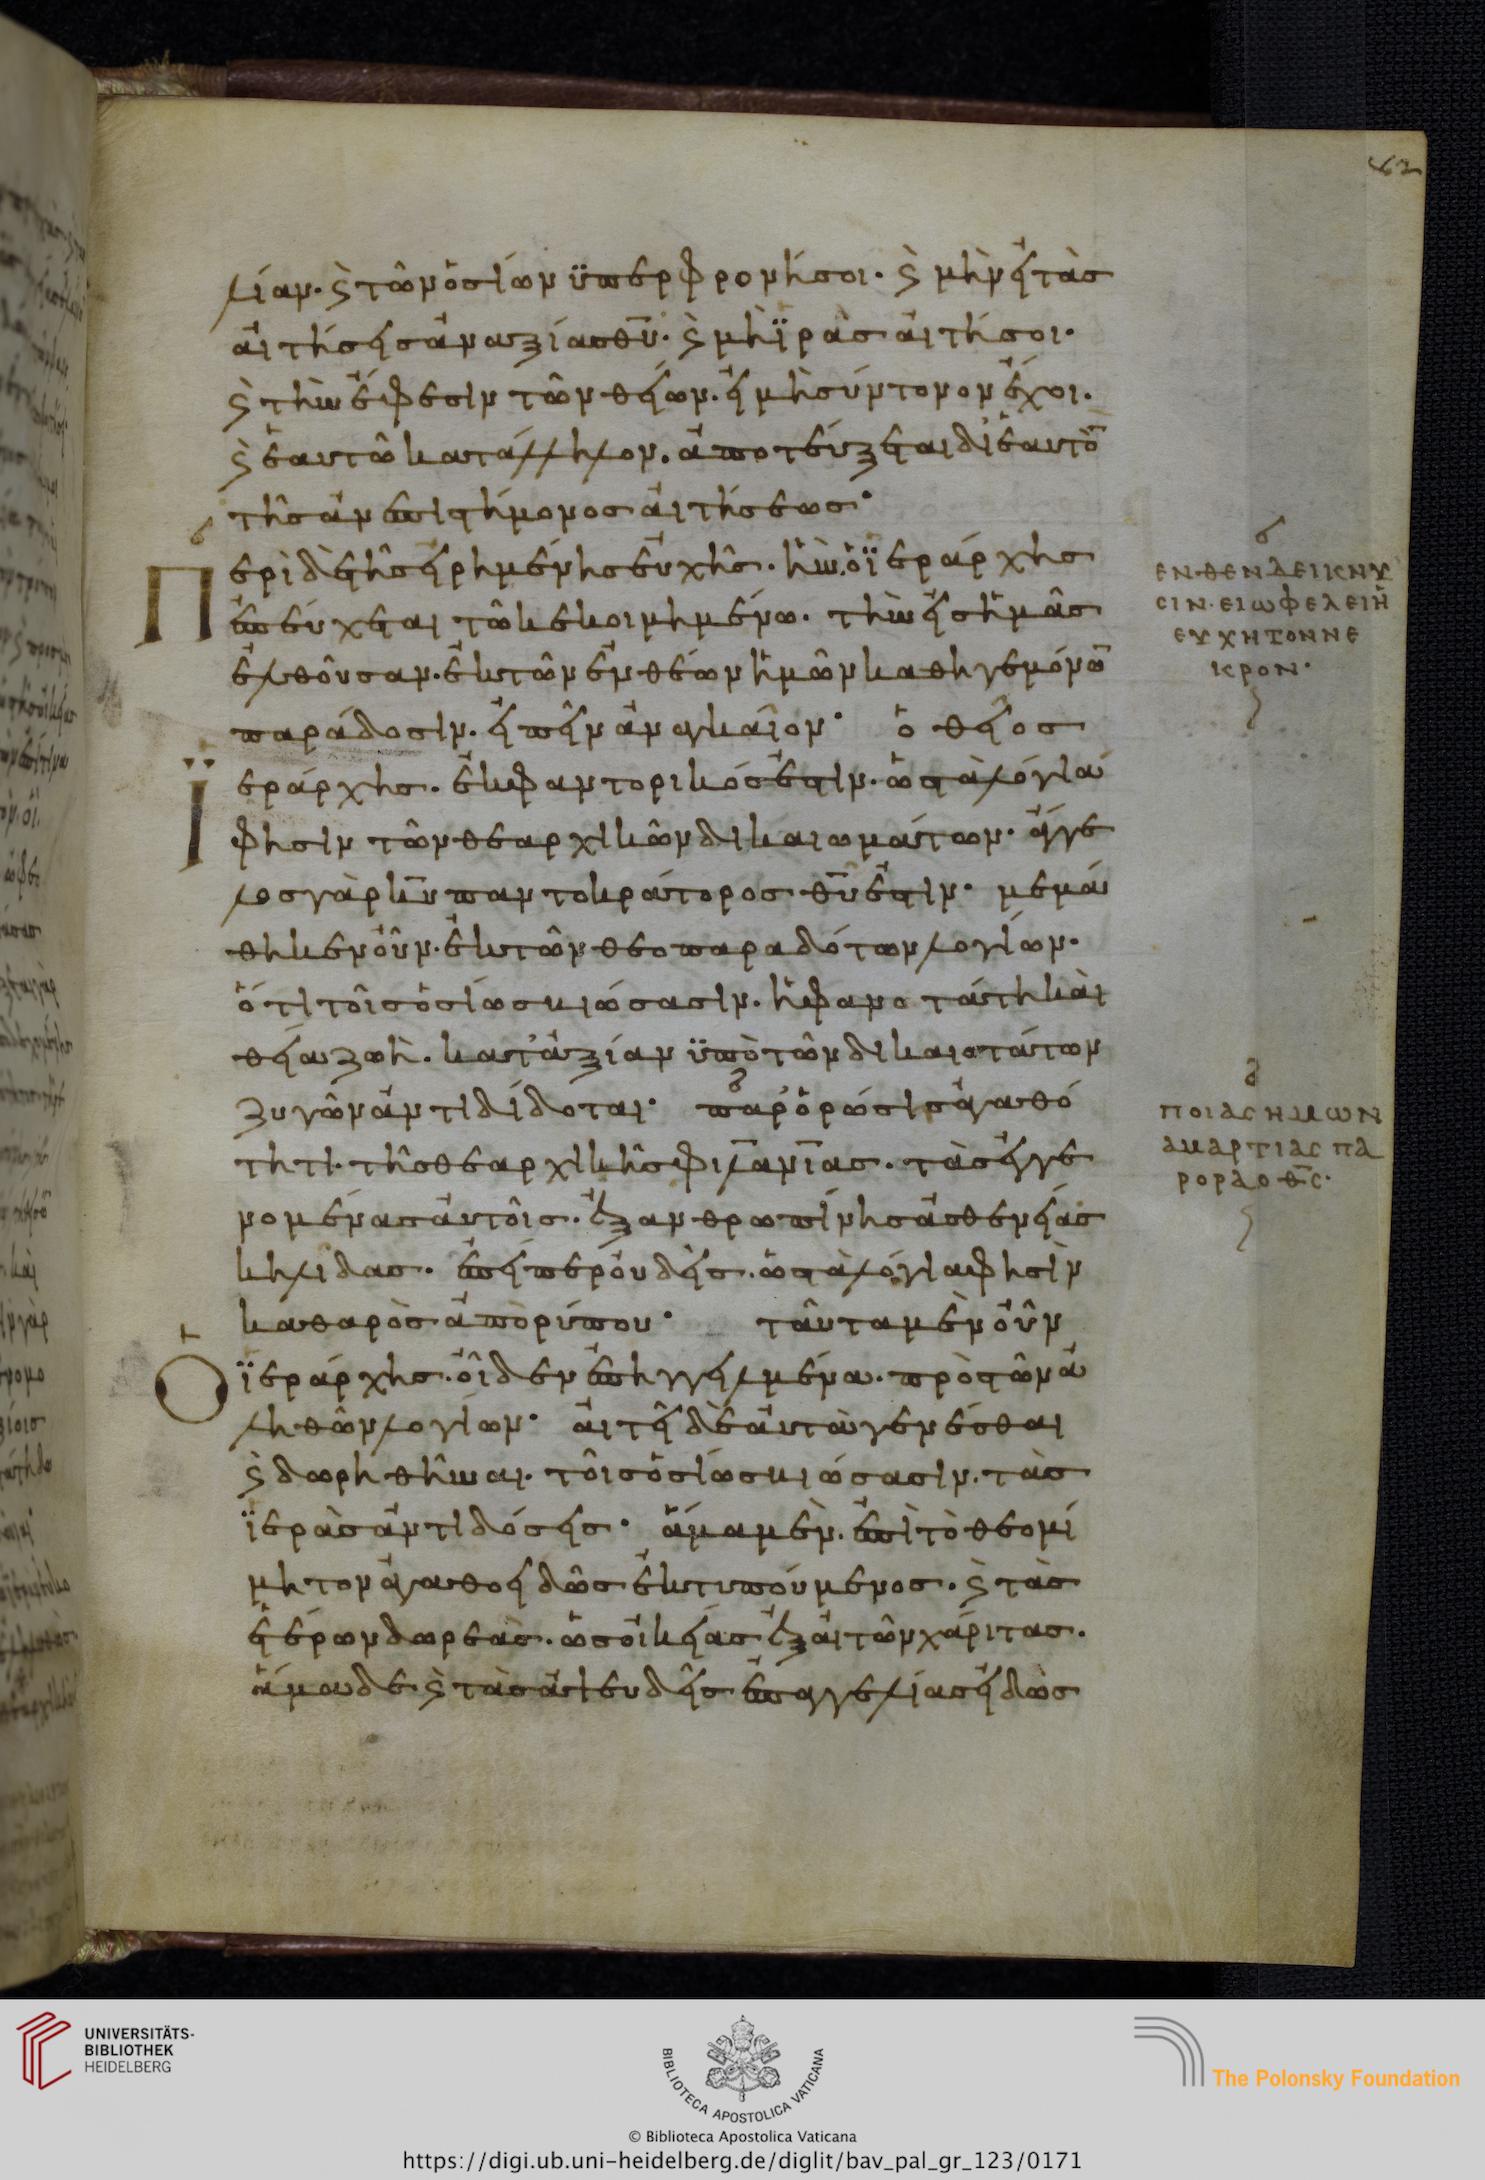 62
λίαν· καὶ τῶν ὁσίων ὑπερφρονήσοι· καὶ μὴν εἰ τὰς
αἰτήσεις ἀναξίας θυ· καὶ μὴ ἱερὰς αἰτήσοι·
καὶ τὴν ἔφεσιν τῶν θείων· εἰ μὴ σύντονον ἔχοι·
καὶ ἑαυτῶ κατάλληλον· ἀποτεύξεται δι' ἑαυτὸν
τῆς ἀνεπιστήμονος αἰτήσεως·
Περὶ δὲ τῆς εἰρημένης εὐχῆς· ἣν ὁ ἱεράρχης
ἐπεύχεται τῶ κεκοιμημένω· τὴν εἰς ἡμᾶς
ἐλθοῦσαν· ἐκ τῶν ἐνθέων ἡμῶν καθηγεμόνων
παράδοσιν· εἰπεῖν ἀναγκαῖον· ὁ θεῖος
ἱεράρχης· ἐκφαντορικός ἐστιν· ὡς τὰ λόγιά
φησιν τῶν θεαρχικῶν δικαιωμάτων· ἄγγε
λος γὰρ κυ παντοκράτορος θυ ἐστιν· μεμά
θηκεν οὖν· ἐκ τῶν θεοπαραδότων λογίων·
ὅτι τοῖς ὁσίως βιώσασιν· ἡ φανοτάτη καὶ
θεία ζωὴ· κατ' ἀξίαν ὑπὸ τῶν δικαιοτάτων
ζυγῶν ἀντιδίδοται· παρορώσης ἀγαθό
τητι· τῆς θεαρχικῆς φιλανιας· τὰς ἐγγε
νομένας αὐτοῖς· ἐξ ἀνθρωπίνης ἀσθενείας
κηλίδας· ἐπείπερ οὐδεὶς· ὡς τὰ λόγια φησὶν
καθαρὸς ἀπὸ ῥύπου· ταῦτα μὲν οὖν
Ὁ ἱεράρχης· οἶδεν ἐπηγγελμένα· πρὸς τῶν ἀ
ληθῶν λογίων· αἰτεῖ δὲ αὐτὰ γενέσθαι
καὶ δωρηθῆναι· τοῖς ὁσίως βιώσασιν· τὰς
ἱερὰς ἀντιδόσεις· ἅμα μὲν· ἐπὶ τὸ θεομί
μητον ἀγαθοειδῶς ἐκτυπούμενος· καὶ τὰς
ἑτέρων δωρεὰς· ὡς οἰκείας ἐξαιτῶν χάριτας·
ἅμα δε καὶ τὰς ἀψευδεῖς ἐπαγγελίας εἰδὼς
ΕΝΘΕΝ ΔΕΙΚΝΥ
СΙΝ· ΕΙ ΩΦΕΛΕΙ Ἡ
ΕΥΧΗ ΤΟΝ ΝΕ
ΚΡΟΝ·
ΠΟΙΑС ΗΜΩΝ
ΑΜΑΡΤΙΑС ΠΑ
ΡΟΡΑ Ο ΘС·
UNIVERSITÄTS-
BIBLIOTHEK
HEIDELBERG
BIBLIOTECA APOSTOLICA VATICANA
© Biblioteca Apostolica Vaticana
The Polonsky Foundation
https://digi.ub.uni-heidelberg.de/diglit/bav_pal_gr_123/0171